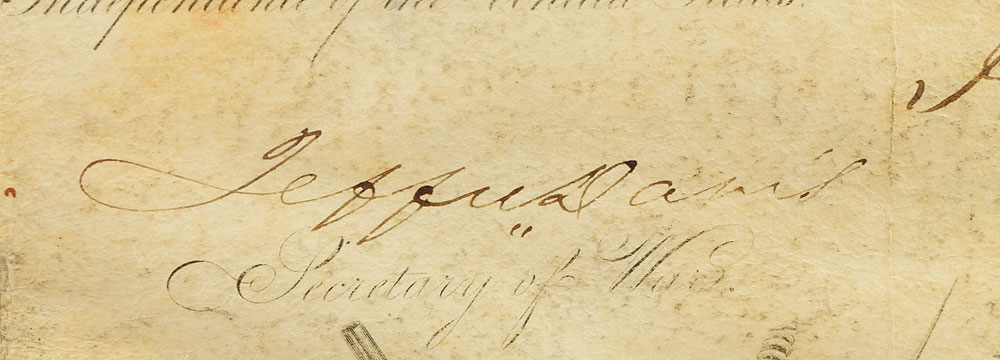 Independence of the United States.
Jeffn Davis
Secretary of War.